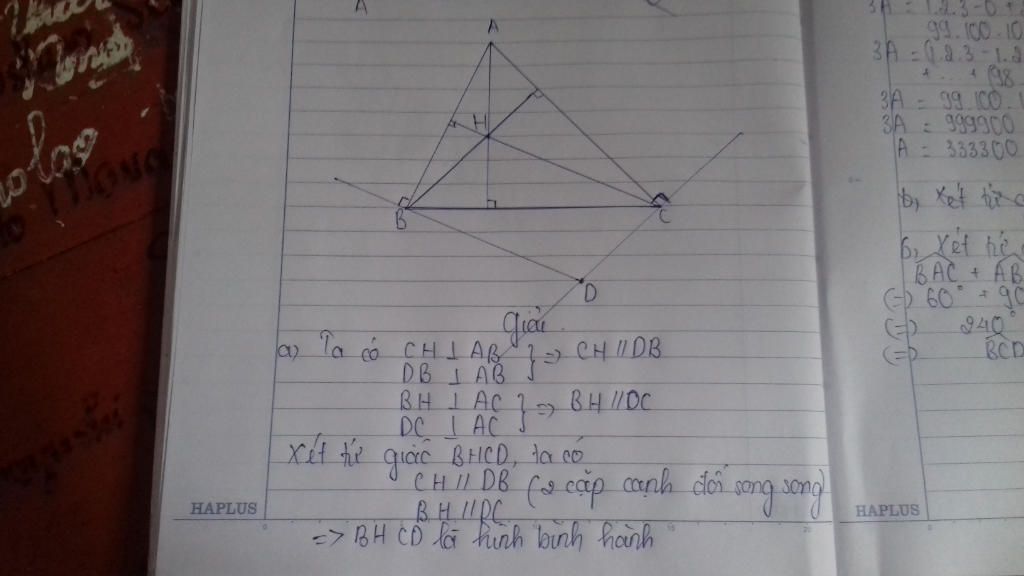 A
A
H
B
C
D
Giải
a) Ta có CH ⊥ AB } => CH // DB
DB ⊥ AB
BH ⊥ AC } => BH // DC
DC ⊥ AC
Xét tứ giác BHCD, ta có
CH // DB (2 cặp cạnh đối song song)
BH // DC
=> BHCD là hình bình hành
HAPLUS
3A = 1.2.3 - 0 +
99.100.10
3A = (1.2.3 - 1.2
+ ... + (98.
3A = 99.100.1
3A = 999900
A = 333300
b, Xét tứ
b, Xét tứ
BAC + AB
(=) 60° + 90
(=) 240°
(=) BCD
HAPLUS